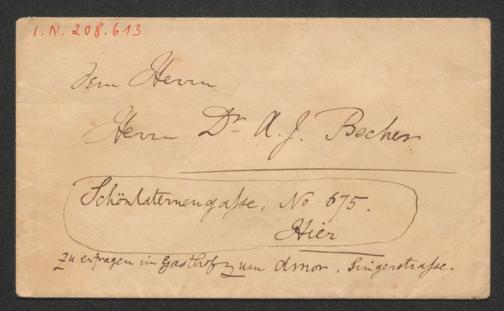 I.N. 208.613
Dem Herrn
Herrn Dr A. J. Becher
Schönlaternengasse, No 675.
Hier
Zu erfragen im Gasthof zum Amor, Singerstrasse.